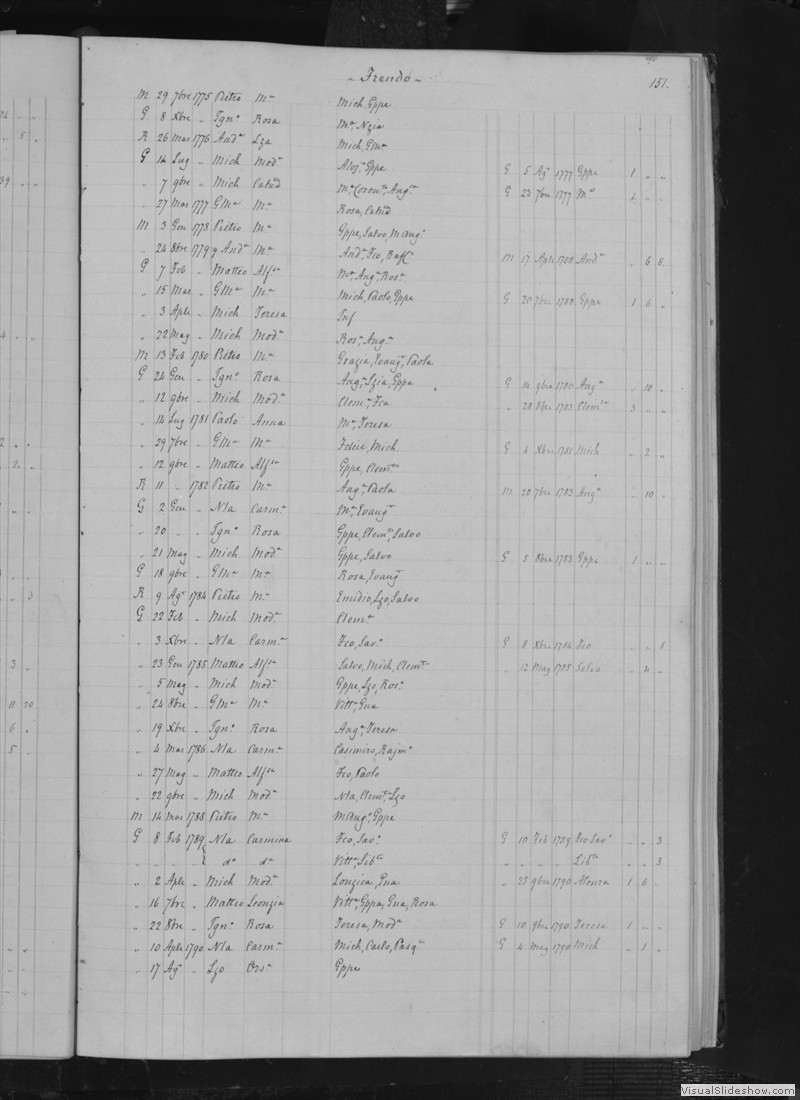 ~ Trendo ~ 151.
M 29 7bre 1775 Pietro Ma Mich, Gppe
G 8 Xbre " Igno Rosa Ma, Nzia
R 26 Mar 1776 Anda Lza Mich, GMa
G 14 Lug " Mich Moda Aloja, Gppe G 5 Ago 1777 Gppe 1 " "
" 7 9bre " Mich Catnd Ma, Corona, Anga G 23 7bre 1777 Ma 1 " "
" 27 Mar 1777 GMa Ma Rosa, Catnd
M 3 Gen 1778 Pietro Ma Gppe, Salvo, M Anga
" 24 8bre 1779 Anda Ma Anda, Fco, Raffa M 17 Aple 1780 Anda " 6 8
G 7 Feb " Matteo Alfsa Ma, Anga, Rosa
" 15 Mar " GMa Ma Mich, Paolo, Gppe G 20 7bre 1780 Gppe 1 6 "
" 3 Aple " Mich Teresa Inf
" 22 Mag " Mich Moda Rosa, Anga
M 13 Feb 1780 Pietro Ma Grazia, Evanga, Paola
G 24 Gen " Igno Rosa Anga, Lzia, Gppa G 14 9bre 1780 Anga " 10 "
" 12 9bre " Mich Moda Clema, Fca " 28 8bre 1783 Clemta 3 " "
" 14 Lug 1781 Paolo Anna Ma, Teresa
" 29 7bre " GMa Ma Felice, Mich G 4 Xbre 1781 Mich " 2 "
" 12 9bre " Matteo Alfsa Gppe, Clemte
R 11 " 1782 Pietro Ma Anga, Paola M 20 7bre 1783 Anga " 10 "
G 2 Gen " Nla Carma Ma, Evanga
" 20 " " Igno Rosa Gppe, Clemte, Salvo
" 21 Mag " Mich Moda Gppe, Salvo G 5 8bre 1783 Gppe 1 " "
G 18 9bre " GMa Ma Rosa, Evanga
R 9 Ago 1784 Pietro Ma Emidio, Lzo, Salvo
G 22 Feb " Mich Moda Clema
" 3 Xbre " Nla Carma Fco, Savo G 8 Xbre 1784 Fco " " 5
" 23 Gen 1785 Matteo Alfsa Salvo, Mich, Clemte " 12 Mag 1785 Salvo " 4 "
" 5 Mag " Mich Moda Gppe, Lzo, Roso
" 24 8bre " GMa Ma Vitta, Gna
" 19 Xbre " Igno Rosa Anga, Teresa
" 4 Mar 1786 Nla Carma Casimiro, Rajmo
" 27 Mag " Matteo Alfsa Fco, Paolo
" 22 9bre " Mich Moda Nla, Clemte, Lzo
M 14 Mar 1788 Pietro Ma M Anga, Gppe
G 8 Feb 1789 Nla Carmina Fco, Savo G 10 Feb 1789 Fco Savo " " 3
" " " " do da Vitta, Liba " " " " Liba " " 3
" 2 Aple " Mich Moda Lonzica, Gna " 23 9bre 1790 Alonza 1 6 "
" 16 7bre " Matteo Leonzia Vitta, Gppa, Gna, Rosa
" 22 8bre " Igno Rosa Teresa, Moda G 10 9bre 1790 Teresa 1 " "
" 10 Aple 1790 Nla Carma Mich, Carlo, Pasqe G 4 Mag 1790 Mich " 1 "
" 17 Ago " Lzo Orsa Gppe
VisualSlideshow.com